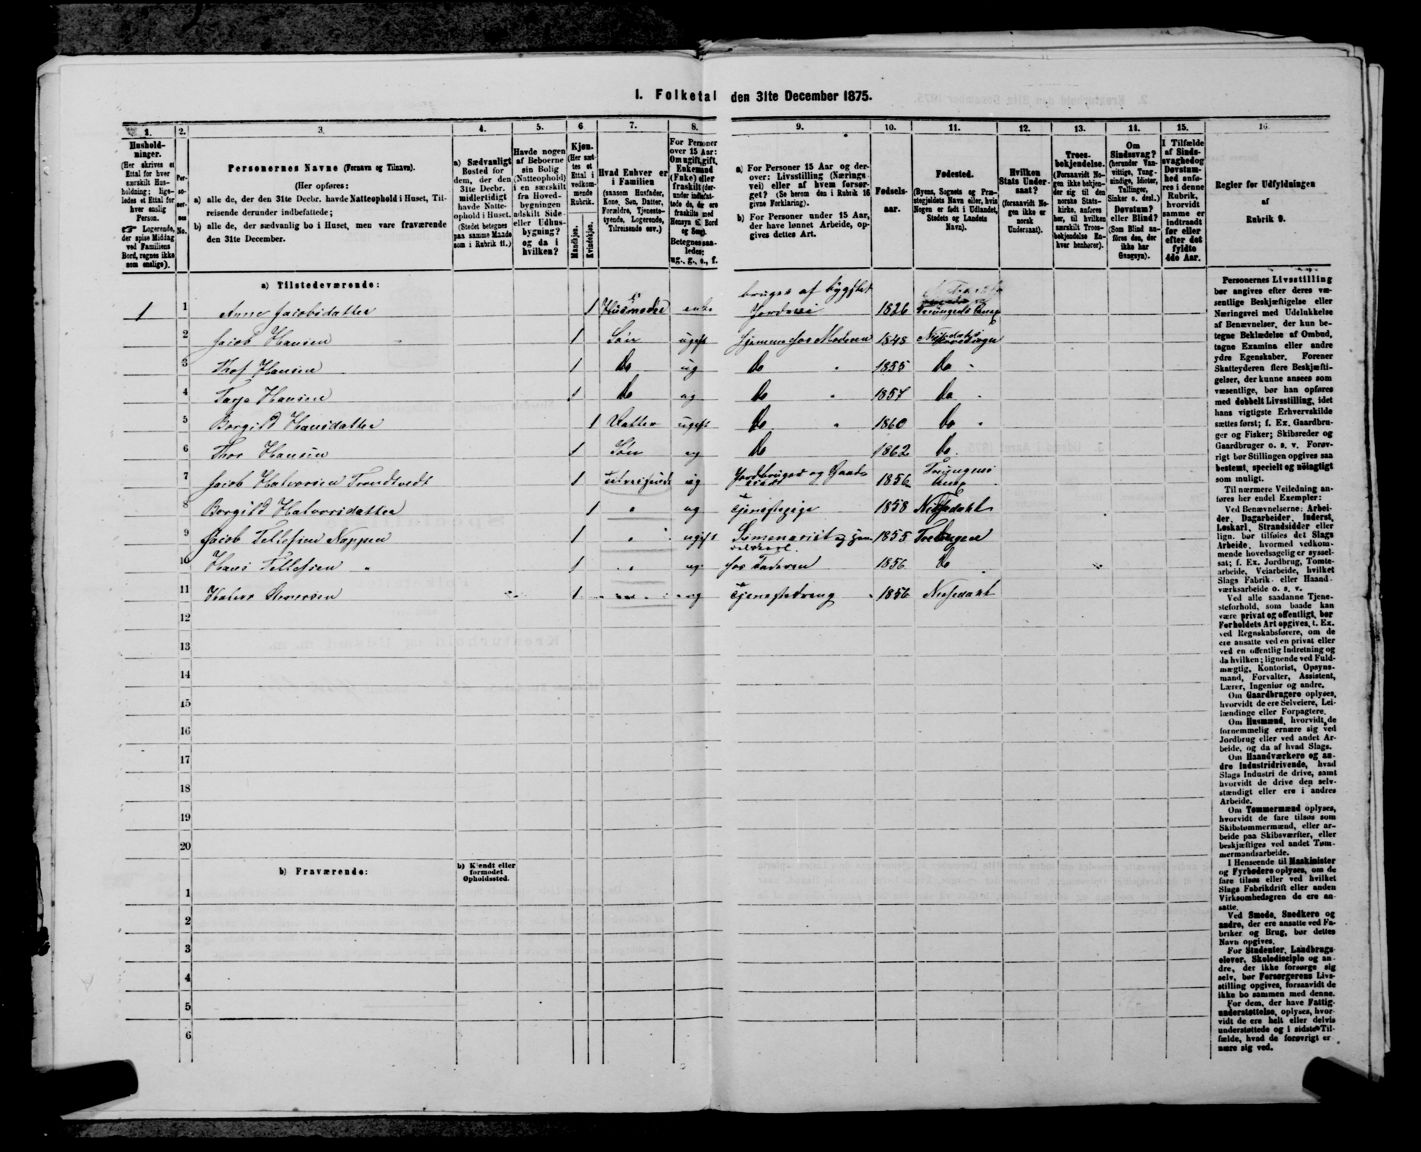 I. Folketal den 31te December 1875.
1. 2. 3. 4. 5. 6 7. 8. 9. 10. 11. 12. 13. 14. 15. 16.
Husholdninger.
(Her skrives et Ettal for hver særskilt Husholdning; ligeledes et Ettal for hver enslig Person.
☞ Logerende, der spise Middag ved Familiens Bord, regnes ikke som enslige).
Personernes No.
Personernes Navne (Fornavn og Tilnavn).
(Her opføres:
a) alle de, der den 31te Decbr. havde Natteophold i Huset, Tilreisende derunder indbefattede;
b) alle de, der sædvanlig bo i Huset, men vare fraværende den 31te December.
a) Sædvanligt Bosted for dem, der den 31te Decbr. midlertidigt havde Natteophold i Huset.
(Stedet betegnes paa samme Maade som i Rubrik 11.)
Havde nogen af Beboerne sin Bolig (Natteophold) i en særskilt fra Hovedbygningen adskilt Side- eller Udhusbygning? og da i hvilken?
Kjøn.
(Her sættes et Ettal i vedkommende Rubrik.
Mandkjøn.
Kvindekjøn.
Hvad Enhver er i Familien
(saasom Husfader, Kone, Søn, Datter, Forældre, Tjenestetyende, Logerende, Tilreisende osv.)
For Personer over 15 Aar: Om ugift, gift, Enkemand (Enke) eller fraskilt
Betegnes saaledes: ug., g., e., f.
a) For Personer 15 Aar og derover: Livsstilling (Næringsvei) eller af hvem forsørget? (Se herom den i Rubrik 16 givne Forklaring).
b) For Personer under 15 Aar, der have lønnet Arbeide, opgives dettes Art.
Fødselsaar.
Fødested.
(Byens, Sognets og Præstegjeldets Navn eller, hvis Nogen er født i Udlandet, Stedets og Landets Navn).
Hvilken Stats Undersaat?
(forsaavidt Nogen ikke er norsk Undersaat).
Troesbekjendelse.
(Forsaavidt Nogen ikke bekjender sig til den norske Statskirke, anføres her, til hvilken særskilt Troesbekjendelse Enhver henhører).
Om Sindssvag?
(herunder Vanvittige, Tungsindige, Idioter, Tullinger, Sinker o. desl.)
Døvstum? eller Blind?
(Som Blind anføres den, der ikke har Gangsyn).
I Tilfælde af Sindssvaghed og Døvstumhed anføres i denne Rubrik, hvorvidt samme er indtraadt før eller efter det fyldte 4de Aar.
Regler for Udfyldningen
af
Rubrik 9.
a) Tilstedeværende:
1 1 Anne Jacobsdatter 1 Husmoder enke bruger af bygslet Jordvei 1826
2 Jacob Hansen 1 Søn ugift hjemme hos Moderen 1848
3 Hansen 1 do ug do 1855 do
4 Hansen 1 do ug do 1857 do
5 Borgild Hansdatter 1 Datter ugift do 1860 do
6 Hansen 1 Søn ug do 1862 do
7 Jacob Halvorsen Trondtvedt 1 ug Jordbruger og 1856
8 Borgild Halvorsdatter 1 " ug Tjenestepige 1858 Nissedahl
9 Jacob Tellefsen Nappen 1 " ugift 1855
10 Hans Tellefsen " 1 " ug hos Faderen 1856 do
11 1 ug Tjenestedreng 1856 Nissedahl
12
13
14
15
16
17
18
19
20
b) Fraværende:
b) Kjendt eller formodet Opholdssted.
1
2
3
4
5
6
Personernes Livsstilling bør angives efter deres væsentlige Beskjæftigelse eller Næringsvei med Udelukkelse af Benævnelser, der kun betegne Beklædelse af Ombud, tagne Examina eller andre ydre Egenskaber. Forener Skatteyderen flere Beskjæftigelser, der kunne ansees som væsentlige, bør han opføres med dobbelt Livsstilling, idet hans vigtigste Erhvervskilde sættes først; f. Ex. Gaardbruger og Fisker; Skibsreder og Gaardbruger o. s. v. Forøvrigt bør Stillingen opgives saa bestemt, specielt og nøiagtigt som muligt.
Til nærmere Veiledning anføres her endel Exempler:
Ved Benævnelserne: Arbeider, Dagarbeider, Inderst, Løskarl, Strandsidder eller lign. bør tilføies det Slags Arbeide, hvormed vedkommende hovedsagelig er sysselsat; f. Ex. Jordbrug, Tomtearbeide, Veiarbeide, hvilket Slags Fabrik- eller Haandværksarbeide o. s. v.
Ved alle saadanne Tjenesteforhold, som baade kan være privat og offentligt, bør Forholdets Art opgives, f. Ex. ved Regnskabsførere, om de ere ansatte ved en privat eller ved en offentlig Indretning og da hvilken; lignende ved Fuldmægtig, Kontorist, Opsynsmand, Forvalter, Assistent, Lærer, Ingeniør og andre.
Om Gaardbrugere oplyses, hvorvidt de ere Selveiere, Leilændinge eller Forpagtere.
Om Husmænd, hvorvidt de fornemmelig ernære sig ved Jordbrug eller ved andet Arbeide, og da af hvad Slags.
Om Haandværkere og andre Industridrivende, hvad Slags Industri de drive, samt hvorvidt de drive den selvstændigt eller ere i andres Arbeide.
Om Tømmermænd oplyses, hvorvidt de fare tilsøs som Skibstømmermænd, eller arbeide paa Skibsværfter, eller beskjæftiges ved andet Tømmermandsarbeide.
I Henseende til Maskinister og Fyrbødere oplyses, om de fare tilsøs eller ved hvilket Slags Fabrikdrift eller anden Virksomhedsgren de ere ansatte.
Ved Smede, Snedkere og andre, der ere ansatte ved Fabriker og Brug, bør dettes Navn opgives.
For Studenter, Landbrugselever, Skoledisciple og andre, der ikke forsørge sig selv, bør Forsørgerens Livsstilling opgives, forsaavidt de ikke bo sammen med denne.
For dem, der have Fattigunderstøttelse, oplyses, hvorvidt de ere helt eller delvis understøttede og i sidste Tilfælde, hvad de forøvrigt ernære sig ved.